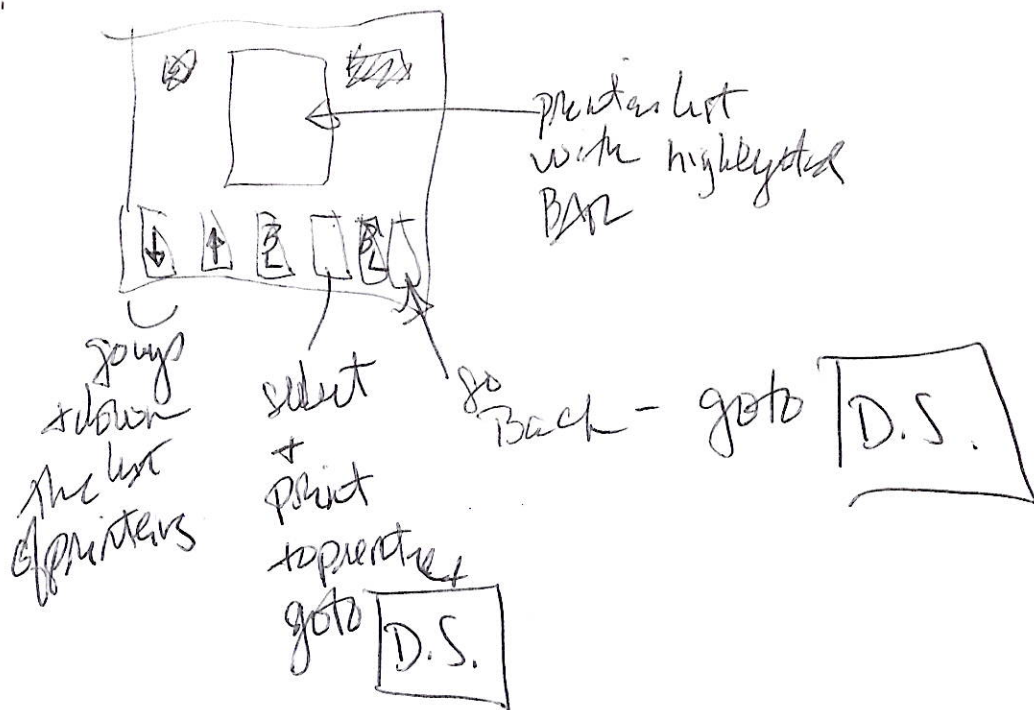 printer list
with highlighted
BAR
↓ ↑ BL BL
go up
+ down
the list
of printers
select
+
print
to printer +
goto D.S.
go
Back - goto D.S.